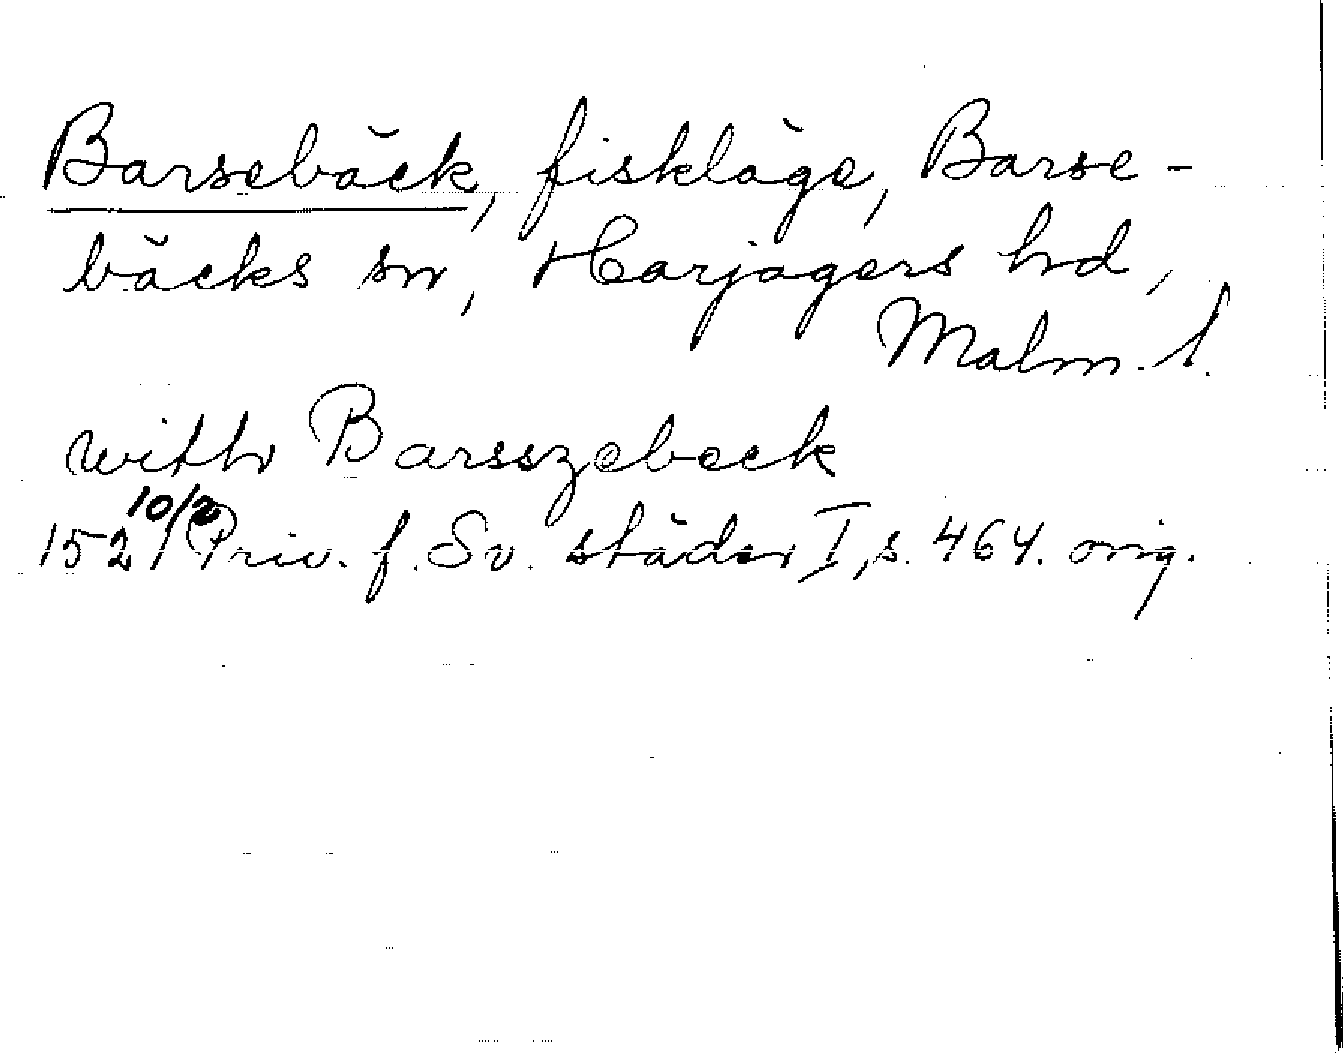 Barsebäck, fiskläge, Barse-
bäcks sn, Harjagers hd,
Malm. l.
witth Barsszebeck
1521 10/2 Priv. f. Sv. städer I, s. 464. orig.